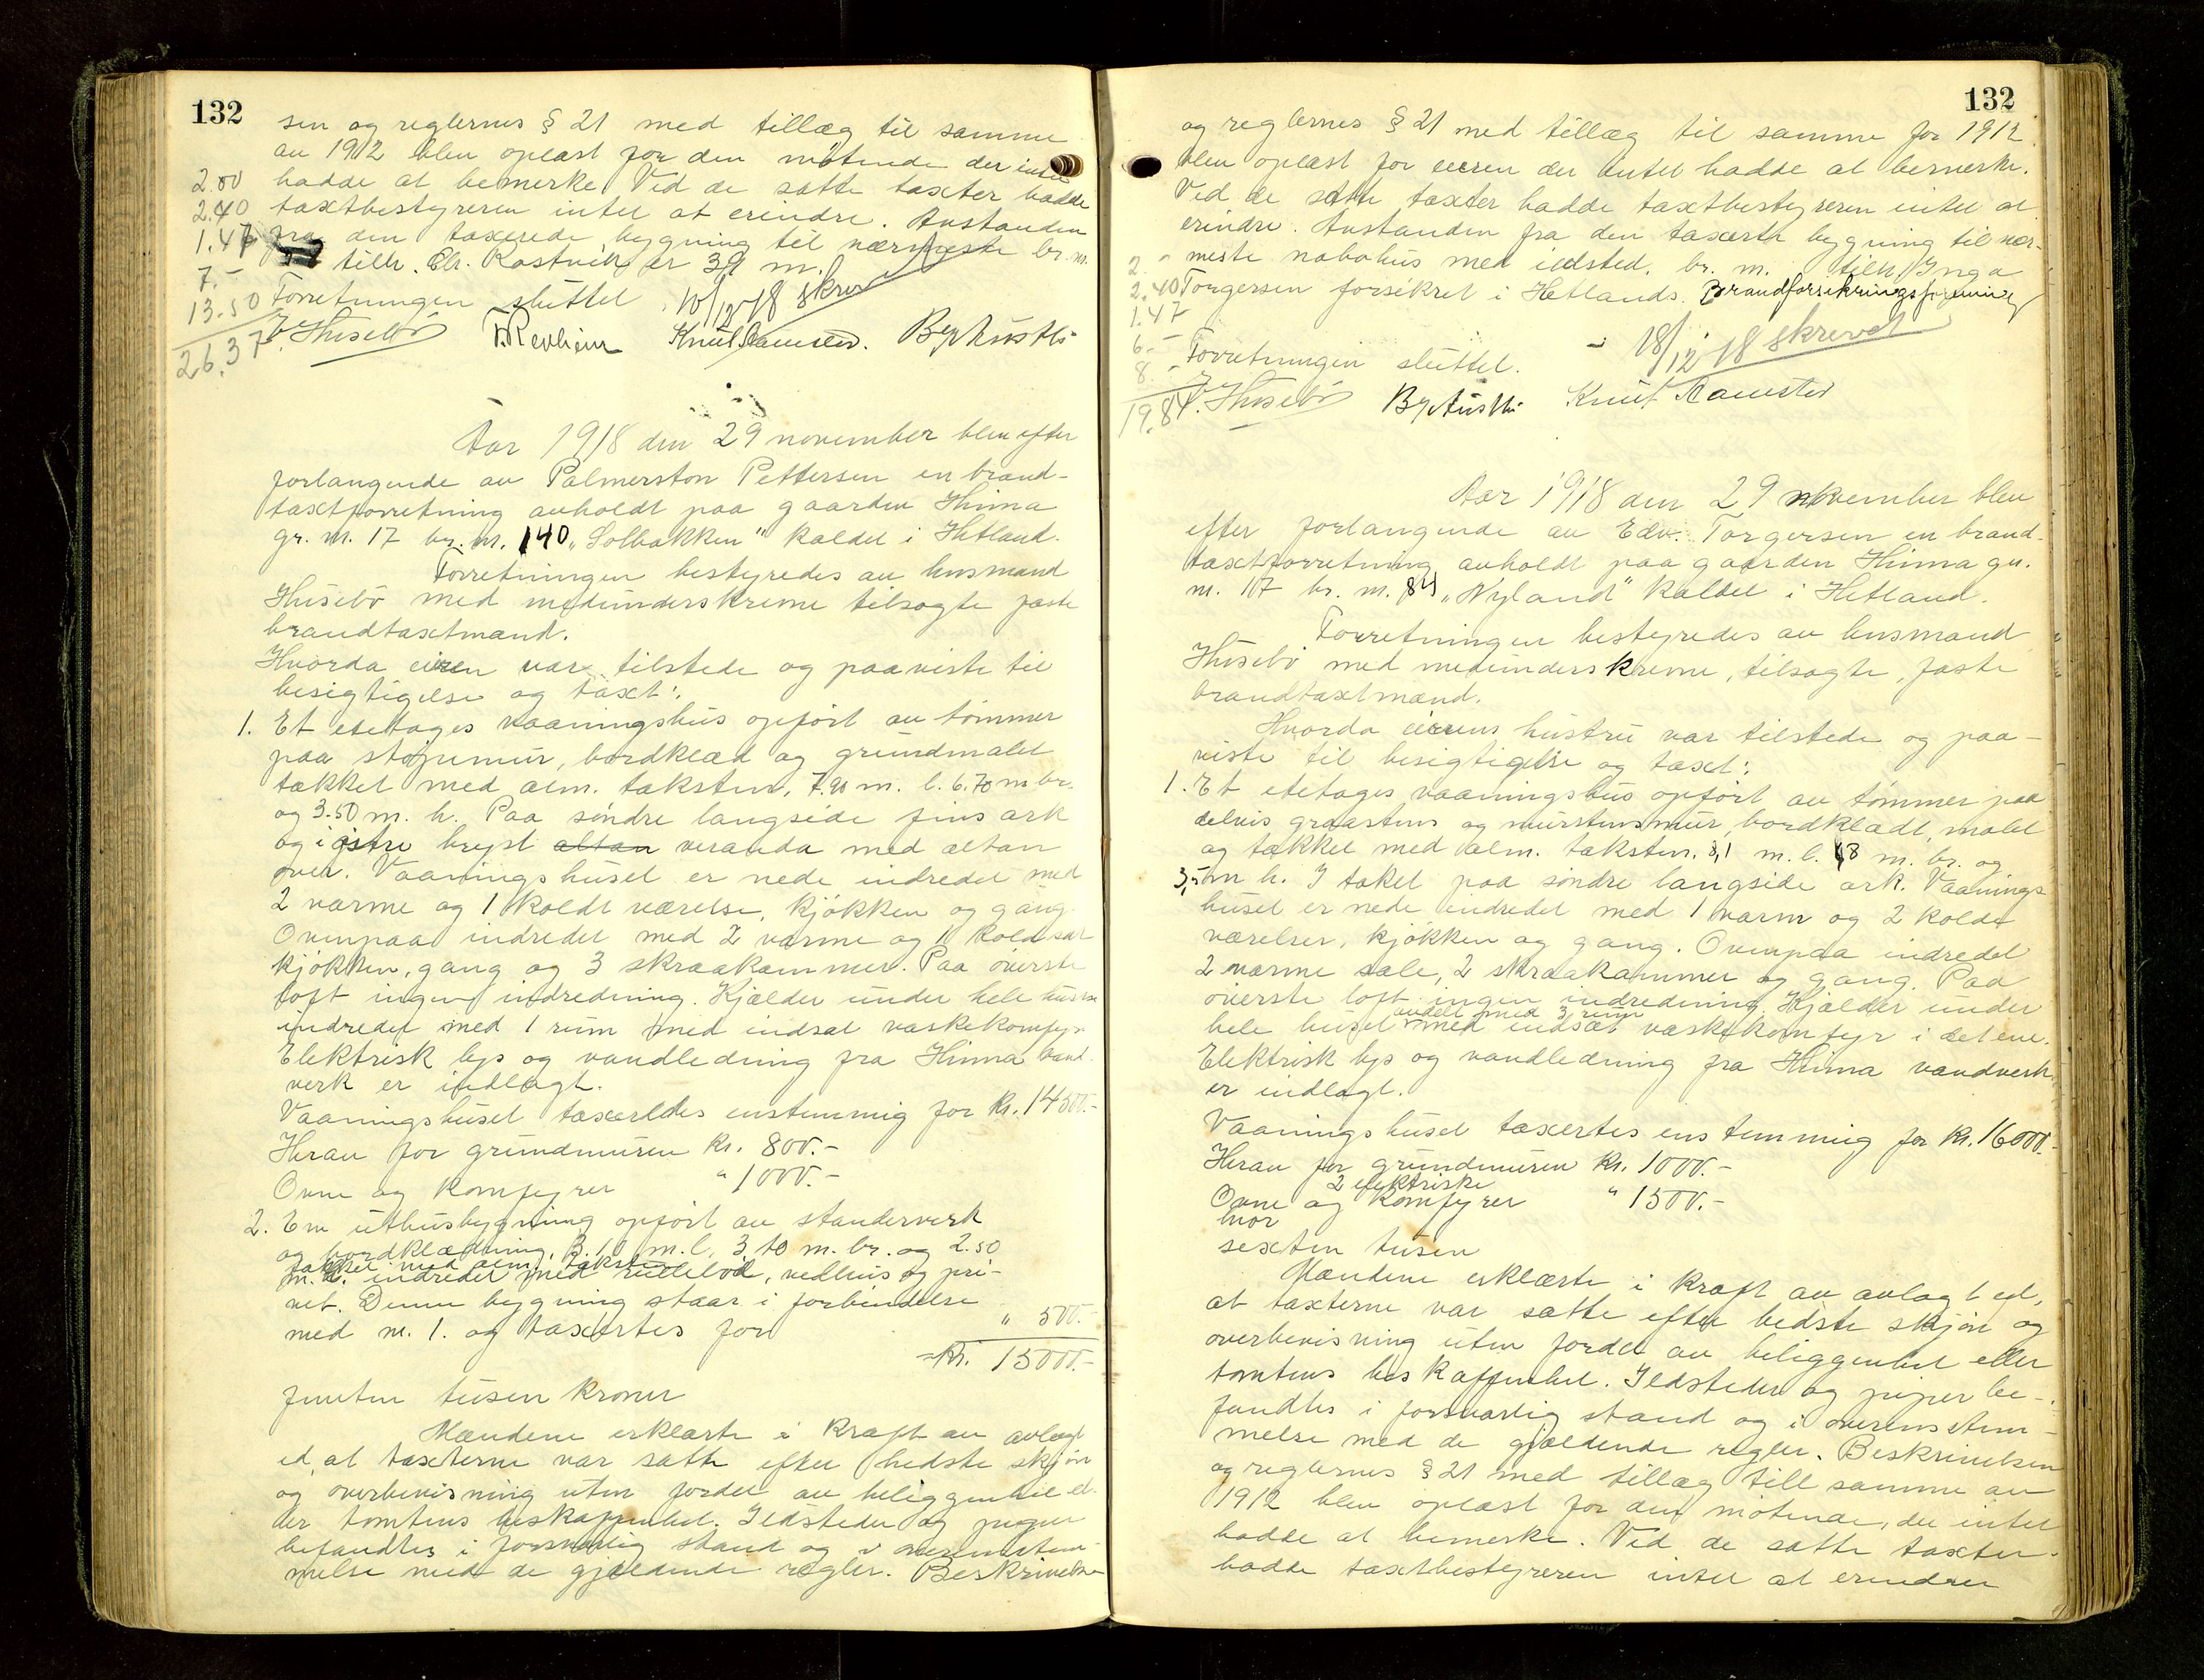 132
sen og reglernes § 21 med tillæg til samme
av 1912 blev oplæst for den møtende der intet
2.00 hadde at bemerke. Ved de satte taxter hadde
2.40 taxtbestyreren intet at erindre. Avstanden
1.47 fra den taxerede bygning til nærmeste br. nr.
7.- tilh. Chr. Rostvik er 39 m.
13.50 Forretningen sluttet. 10/12 18 skrev
26.37 E. Husebø T. Revheim Knut Ramsted.
Aar 1918 den 29 november blev efter
forlangende av Palmerston Pettersen en brand-
taxtforretning avholdt paa gaarden Hinna
gr. nr. 17 br. nr. 140 „Solbakken" kaldet i Hetland.
Forretningen bestyredes av lensmand
Husebø med medunderskrevne tilsagte faste
brandtaxtmænd.
Hvorda eieren var tilstede og paaviste til
besigtigelse og taxt:
1. Et etetages vaaningshus opført av tømmer
paa støpemur, bordklæd og grundmalet
tækket med alm. taksten, 7.90 m. l. 6.70 m br.
og 3.50 m. h. Paa søndre langside fins ark
og i østre brejst altan veranda med altan
over. Vaaningshuset er nede indredet med
2 varme og 1 koldt værelse, kjøkken og gang
Ovenpaa indredet med 2 varme og 1 kold sal
kjøkken, gang og 3 skraakammer. Paa øverste
loft ingen indredning. Kjælder under hele huset
indredet med 1 rum med indsat vaskekomfyr
Elektrisk lys og vandledning fra Hinna vand-
verk er indlagt.
Vaaningshuset taxertes enstemmig for Kr. 14500.-
Herav for grundmuren Kr. 800.-
Ovne og komfyrer " 1000.-
2. En uthusbygning opført av standerverk
og bordklædning, 3.10 m. l. 3.10 m. br. og 2.50
takket med alm. taksten
m. h. indredet med rullebod, vedhus og pri-
vet. Denne bygning staar i forbindelse
med nr. 1. og taxertes for " 500.-
Kr. 15000.-
femten tusen kroner
Mændene erklærte i kraft av avlagt
ed, at taxterne var satte efter bedste skjøn
og overbevisning uten fordel av beliggenhet el-
ler tomtens beskaffenhet. Ildsteder og piper
befandtes i forsvarlig stand og i overensstem-
melse med de gjældende regler. Beskrivelsen
132
og reglernes § 21 med tillæg til samme for 1912
blev oplæst for eieren der intet hadde at bemerke.
Ved de satte taxter hadde taxtbestyreren intet at
erindre. Avstanden fra den taxerte bygning til nær-
2.- meste nabohus med ildsted, br. nr. tilh. Inga
2.40 Torgersen forsikret i Hetlands. Brandforsikringsforening
1.47
6.- 18/12 18 skrevet
8.- Forretningen sluttet.
19.87 E. Husebø Knut Ramsted
Aar 1918 den 29 november blev
efter forlangende av Edv. Torgersen en brand-
taxtforretning avholdt paa gaarden Hinna gr.
nr. 17 br. nr. 84 „Nyland" kaldet i Hetland.
Forretningen bestyredes av lensmand
Husebø med medunderskrevne, tilsagte, faste
brandtaxtmænd.
Hvorda eierens hustru var tilstede og paa-
viste til besigtigelse og taxt:
1. Et etetages vaaningshus opført av tømmer paa
delvis graastens og murstensmur, bordklædt, malet
og tækket med alm. taksten. 8,1 m. l. 8 m. br. og
3,5 m h. I taket paa søndre langside ark. Vaanings-
huset er nede indredet med 1 varm og 2 kolde
værelser, kjøkken og gang. Ovenpaa indredet
2 varme sale, 2 skraakammer og gang. Paa
øverste loft ingen indredning. Kjælder under
avdelt med 3 rum
hele huset med indsat vaskekomfyr i det ene.
Elektrisk lys og vandledning fra Hinna vandverk
er indlagt.
Vaaningshuset taxertes enstemmig for Kr. 16000.-
Herav for grundmuren Kr. 1000.-
2 elektriske
Ovne og komfyrer " 1500.-
sexten tusen
Mændene erklærte i kraft av avlagt ed,
at taxterne var satte efter bedste skjøn og
overbevisning uten fordel av beliggenhet eller
tomtens beskaffenhet. Ildsteder og piper be-
fandtes i forsvarlig stand og i overensstem-
melse med de gjældende regler. Beskrivelsen
og reglernes § 21 med tillæg till samme av
1912 blev oplæst for den møtende, der intet
hadde at bemerke. Ved de satte taxter
hadde taxtbestyreren intet at erindre